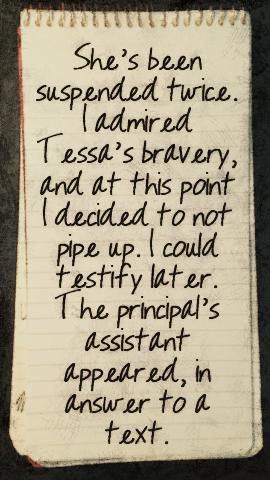 She's been
suspended twice.
I admired
Tessa's bravery,
and at this point
I decided to not
pipe up. I could
testify later.
The principal's
assistant
appeared, in
answer to a
text.